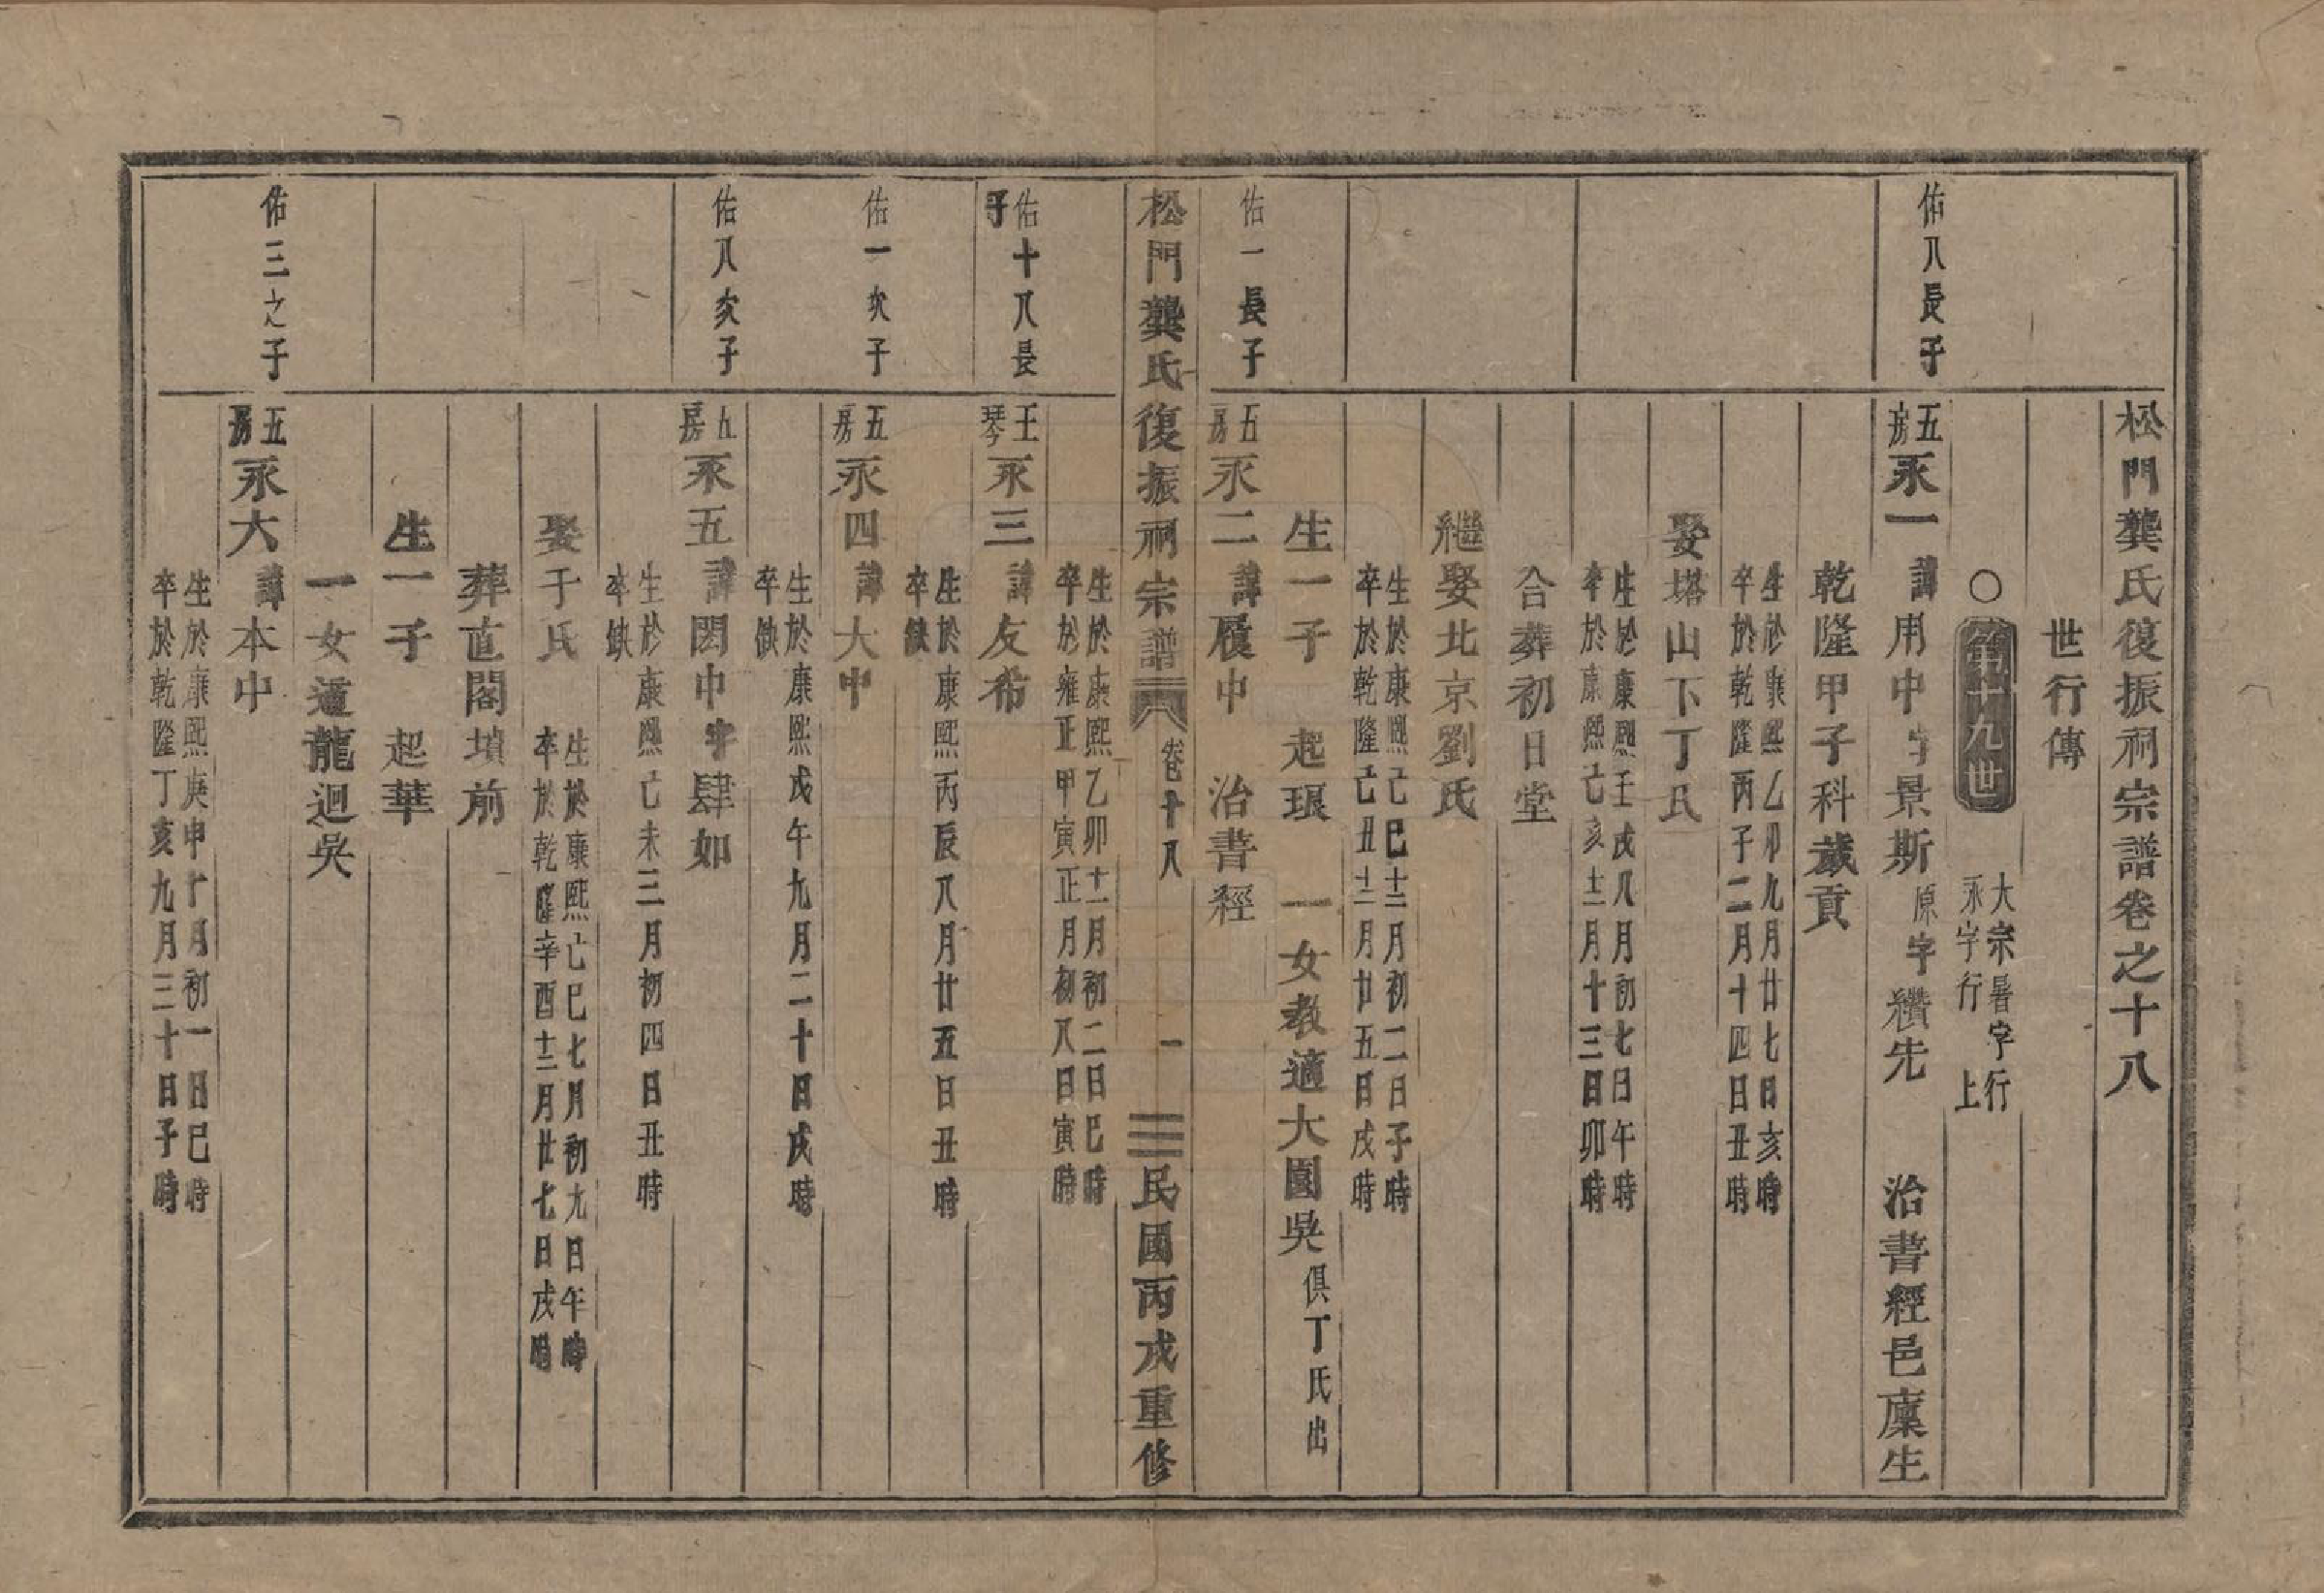 松門龔氏復振祠宗譜卷之十八
世行傳
○第十九世
大宗暑字行
永字行上
佑八長子
五房
永一
諱用中字景斯原字纘先 治書經邑廩生
乾隆甲子科歲貢
生於康熙乙卯九月廿七日亥時
卒於乾隆丙子二月十四日丑時
娶塔山下丁氏
生於康熙壬戌八月初七日午時
卒於康熙己亥十二月十三日卯時
合葬初日堂
繼娶北京劉氏
生於康熙己巳十二月初二日子時
卒於乾隆己丑十二月廿五日戌時
生一子 起琅 一女教適大園吳俱丁氏出
佑一長子
五房
永二諱履中 治書經
松門龔氏復振祠宗譜 卷十八 一 民國丙戌重修
生於康熙乙卯十一月初二日巳時
卒於雍正甲寅正月初八日寅時
佑十八長子
王琴
永三諱友希
生於康熙丙辰八月廿五日丑時
卒缺
佑一次子
五房
永四諱大中
生於康熙戊午九月二十日戌時
卒缺
佑八次子
五房
永五諱閎中字肆如
生於康熙己未三月初四日丑時
卒缺
娶于氏
生於康熙己巳七月初九日午時
卒於乾隆辛酉十二月廿七日戌時
葬直閣墳前
生一子 起華
一女適龍迴吳
佑三之子
五房
永六諱本中
生於康熙庚申十月初一日巳時
卒於乾隆丁亥九月三十日子時